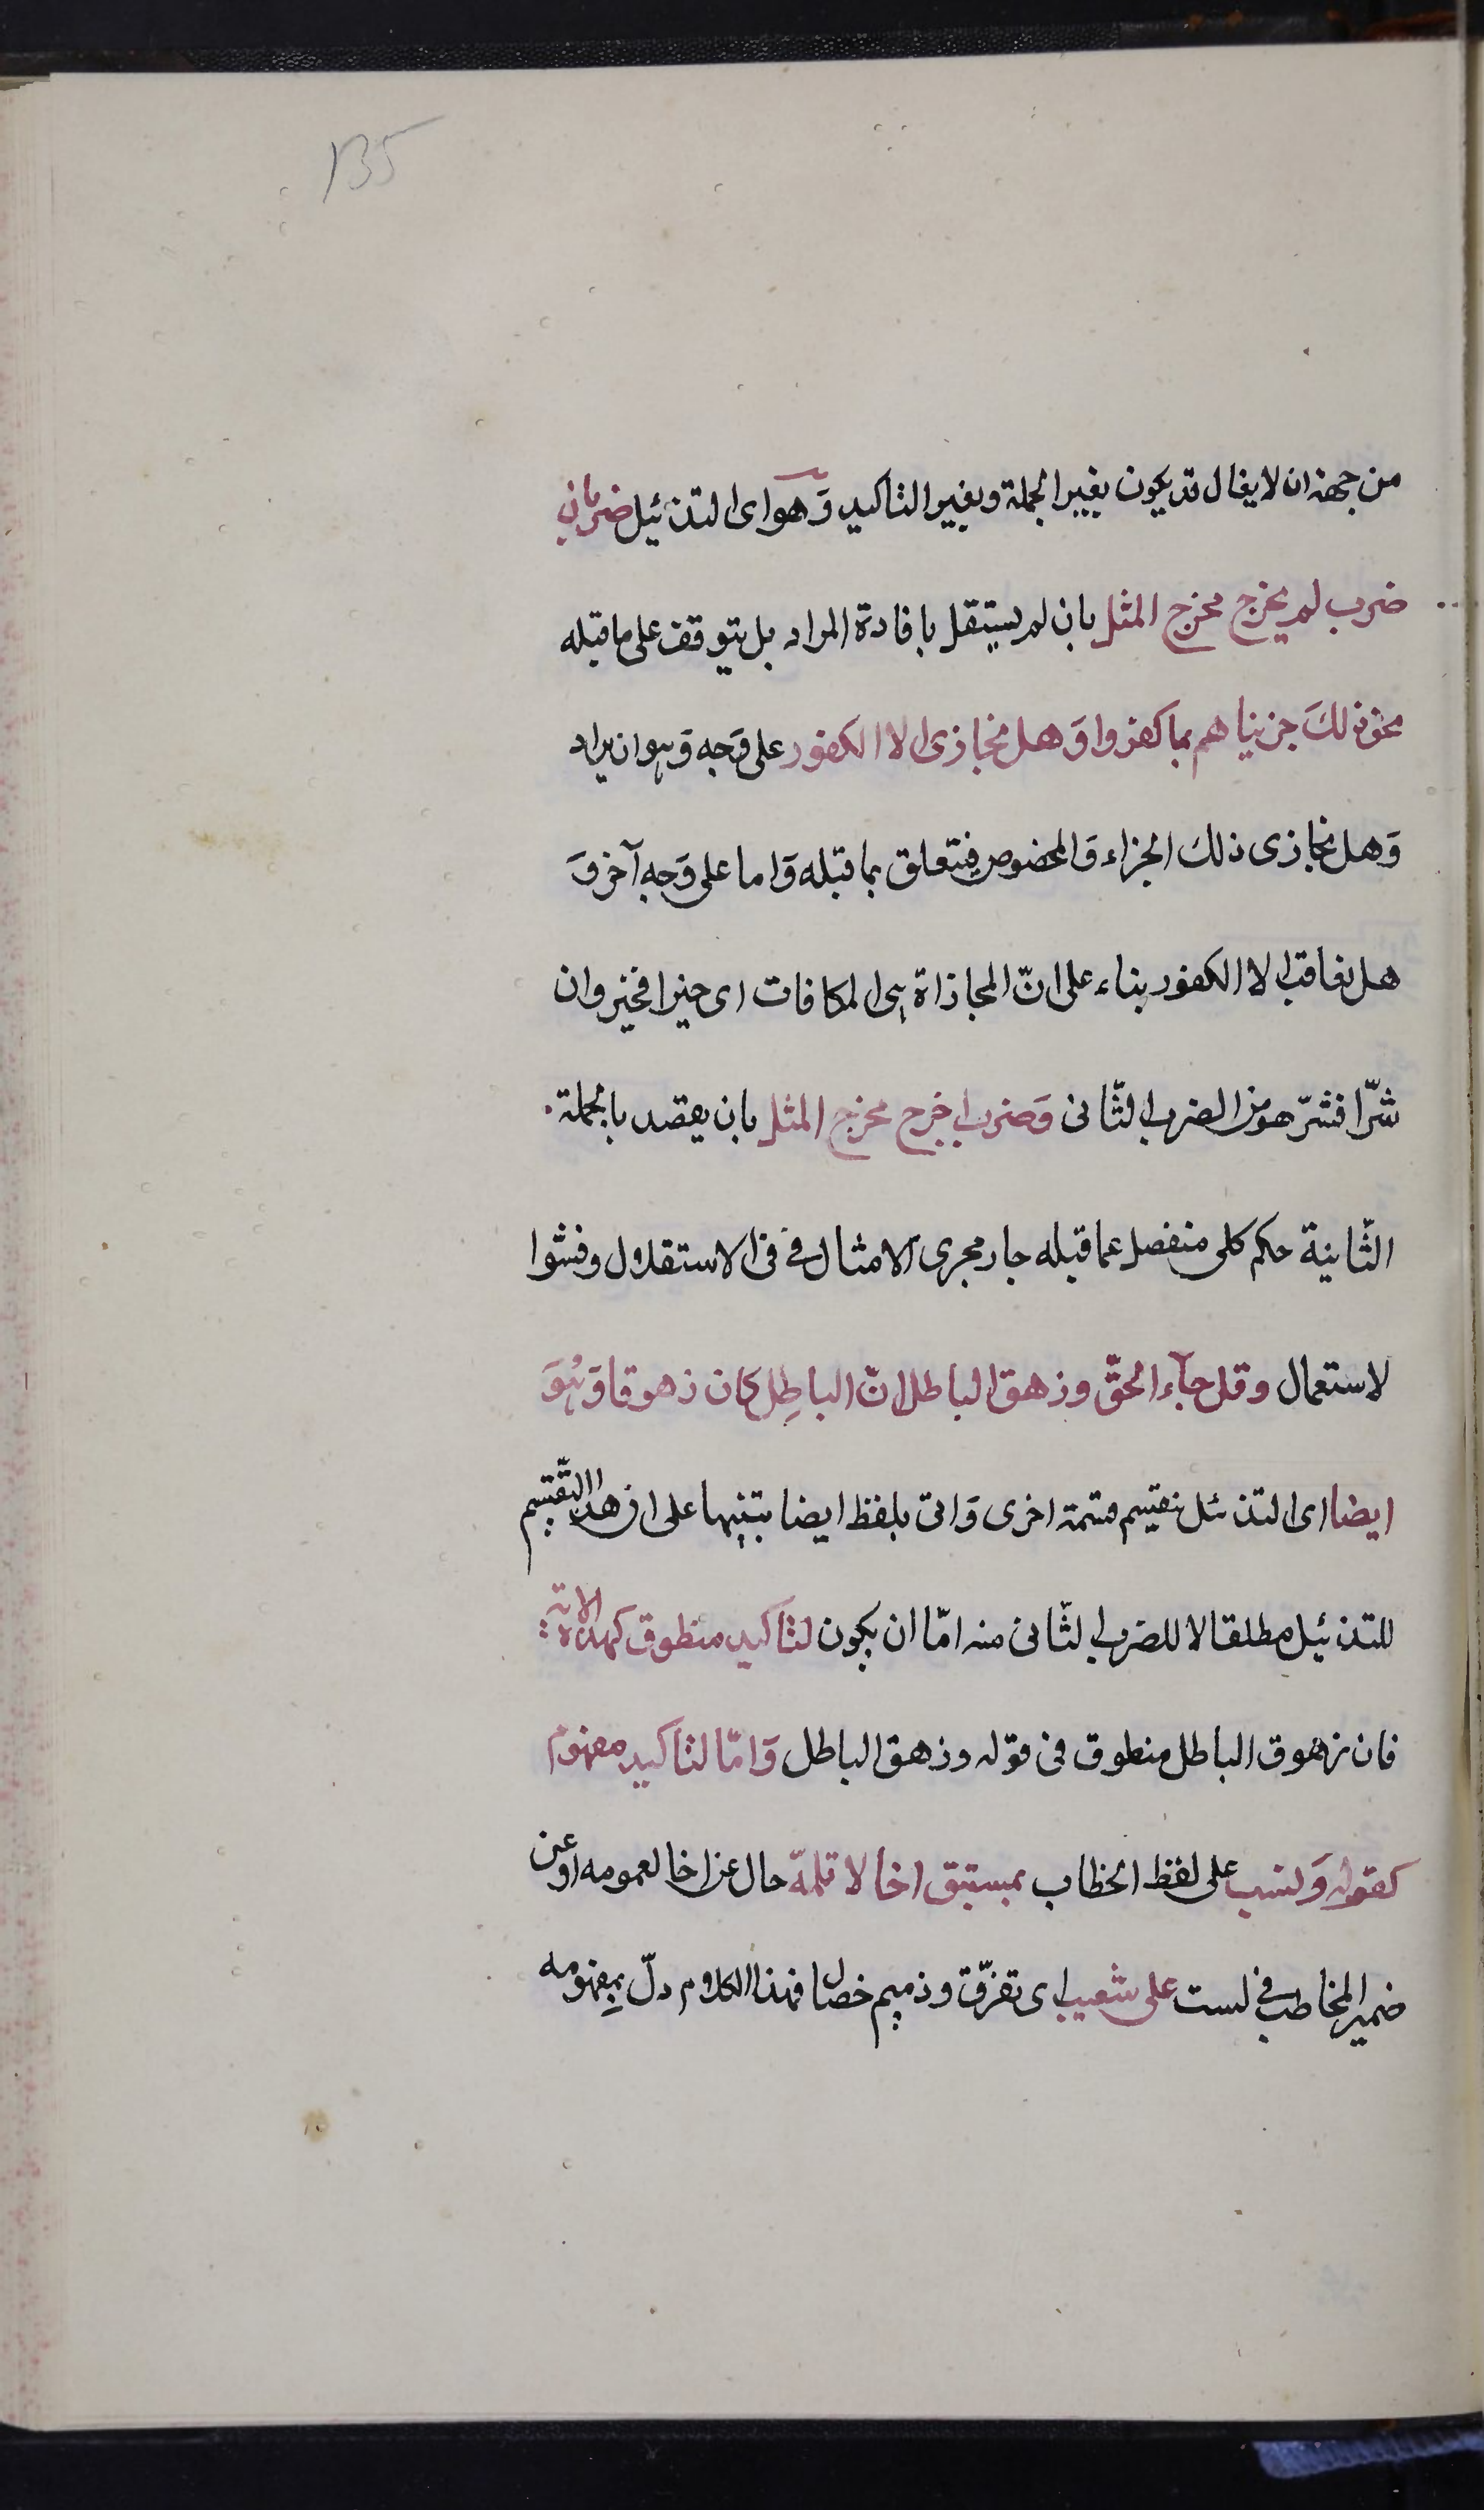 135
من جهة ان الايغال قد يكون بغير الجملة وبغير التاكيد وَهو اى التذئيل ضربان
ضرب لم يخرج مخرج المثل بان لم يستقل بافادة المراد بل يتوقف على ما قبله
نحو ذلكَ جزيناهم بما كفروا وَهل نجازى الا الكفور على وَجه وَهو ان يراد
وَهل نجازى ذلك الجزاء وَالمخصوص فيتعلق بما قبله وَاما على وَجه آخر وَ
هل يعاقب الا الكفور بناء على انّ المجازاة هى المكافات اى خيرا فخير وان
شرّا فشرّ هو من الضرب الثّانى وَضرب اخرج مخرج المثل بان يقصد بالجملة
الثّانية حكم كلى منفصل عما قبله جار مجرى الامثال فى الاستقلال وفشوا
لاستعمال وقل جآء الحقّ وزهق الباطل انّ الباطِل كان زهوقا وَهُوَ
ايضا اى التذئل ينقسم قسمة اخرى وَاتى بلفظ ايضا تنبيها على ان هذا التّقسيم
للتذئيل مطلقا لا للضرب الثّانى منه امّا ان يكون لتاكيد منطوق كهذه الاية
فان زهوق الباطل منطوق فى قوله وزهق الباطل وَامّا لتاكيد مفهوم
كقوله وَلست على لفظ الخطاب بمستبق اخا لا تلمّه حال عن اخا لعمومه او عن
ضمير المخاطب فى لست على شعث اى تفرّق وذميم خصال فهذا الكلام دلّ بمفهومه